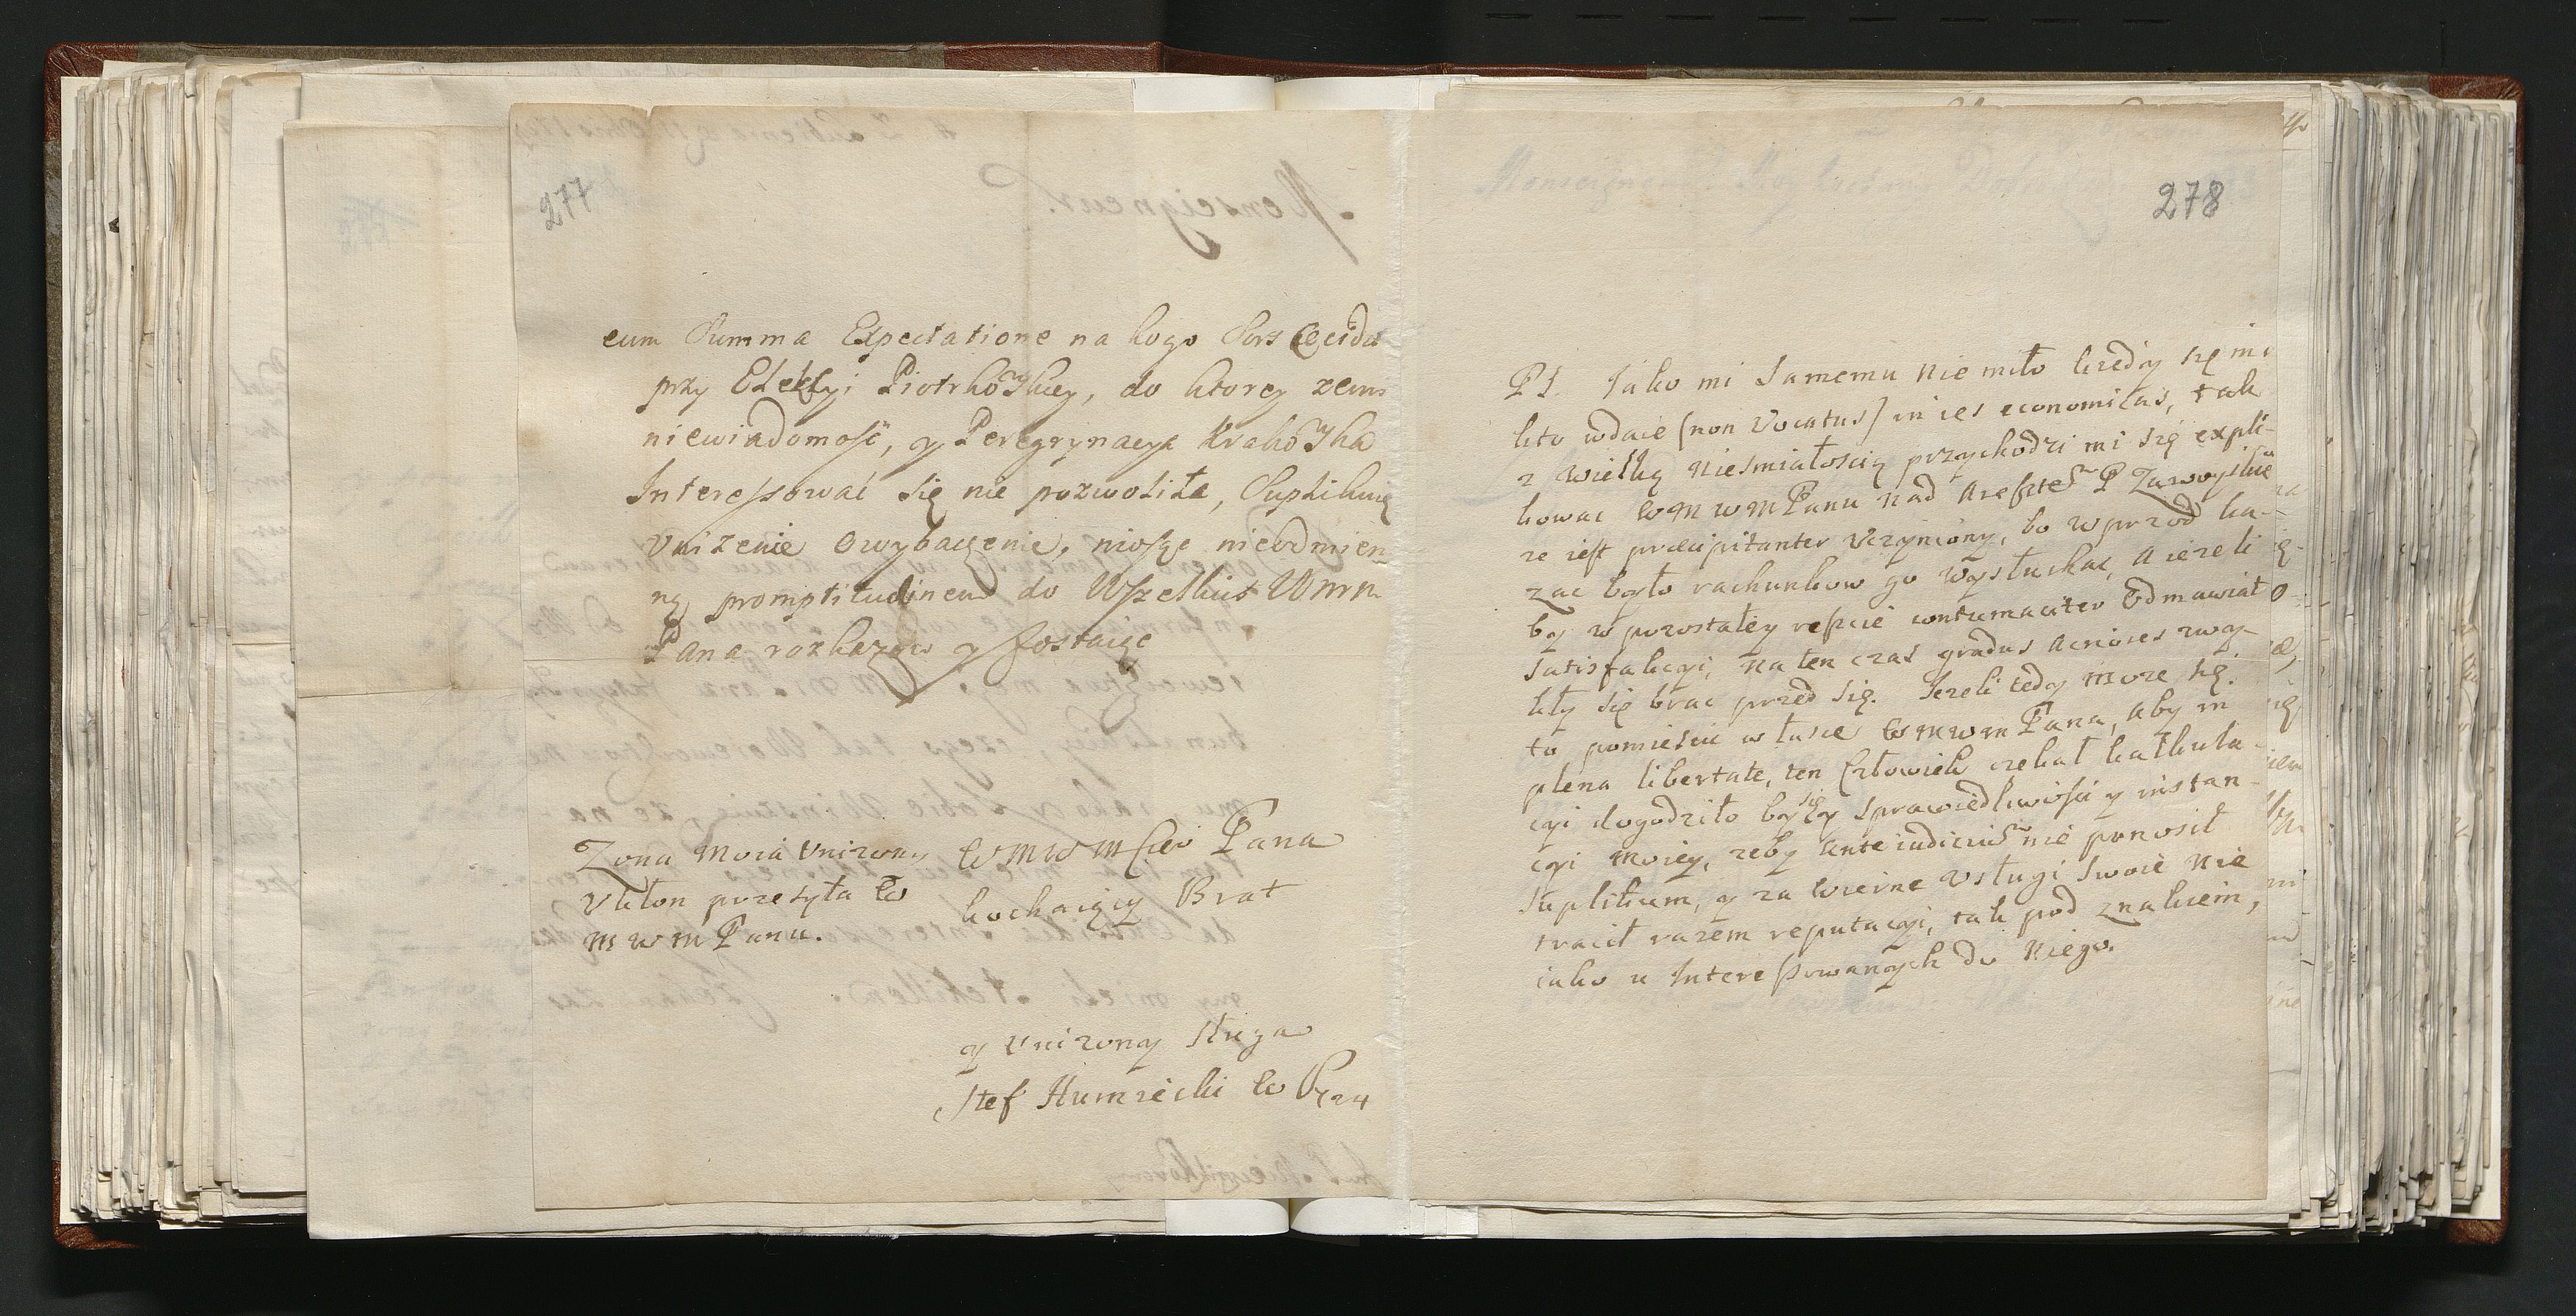 277
cum Summa Expectatione na kogo Sors Cecidit
przy Elekcyi Piotrkowskiey, do ktorey zem
niewiadomość, y Peregrynacya Krakowska
Interessować się nie pozwoliła, Suplikuię
Vniżenie o wybaczenie, niosąc nieodmien
ną promptitudinem do Wszelkich WMM
Pana rozkazow y zostaię
Zona moia Vnizony
Vkłon przesyła W
M W M Panu.
WMWMsciw Pana
kochaiący Brat
y Vnizony Sługa
Stef Humiecki W P
278
PS. Jako mi Samemu nie miło kiedy się mi
kto wdaie (non Vocatus) in res economicas, tak
z wielką nieśmiałoscią przychodzi mi się expli-
kowac WMWMPanu nad Aresztem P Zawoyskie
ze iest præcipitanter Vczyniony, bo w przod ka-
zac było rachunkow go wysłuchac, a iezeli
by w pozostałey reszcie contumaciter Odmawiał
Satisfakcyi, na ten czas gradus Acriores zwy-
kły się brac przed się. Jezeli tedy moze się
to pomiescic w łasce WMWM Pana, aby in
plena libertate, ten człowiek czekał kalkula-
cyi dogodziło by się Sprawiedliwości y instan-
cyi moiey, zeby Ante iudicium nie ponosił
Suplicium, y za wierne vsługi Swoie nie
tracił razem reputacyi, tak pod znakiem,
iako u Interessowanych do Niego.